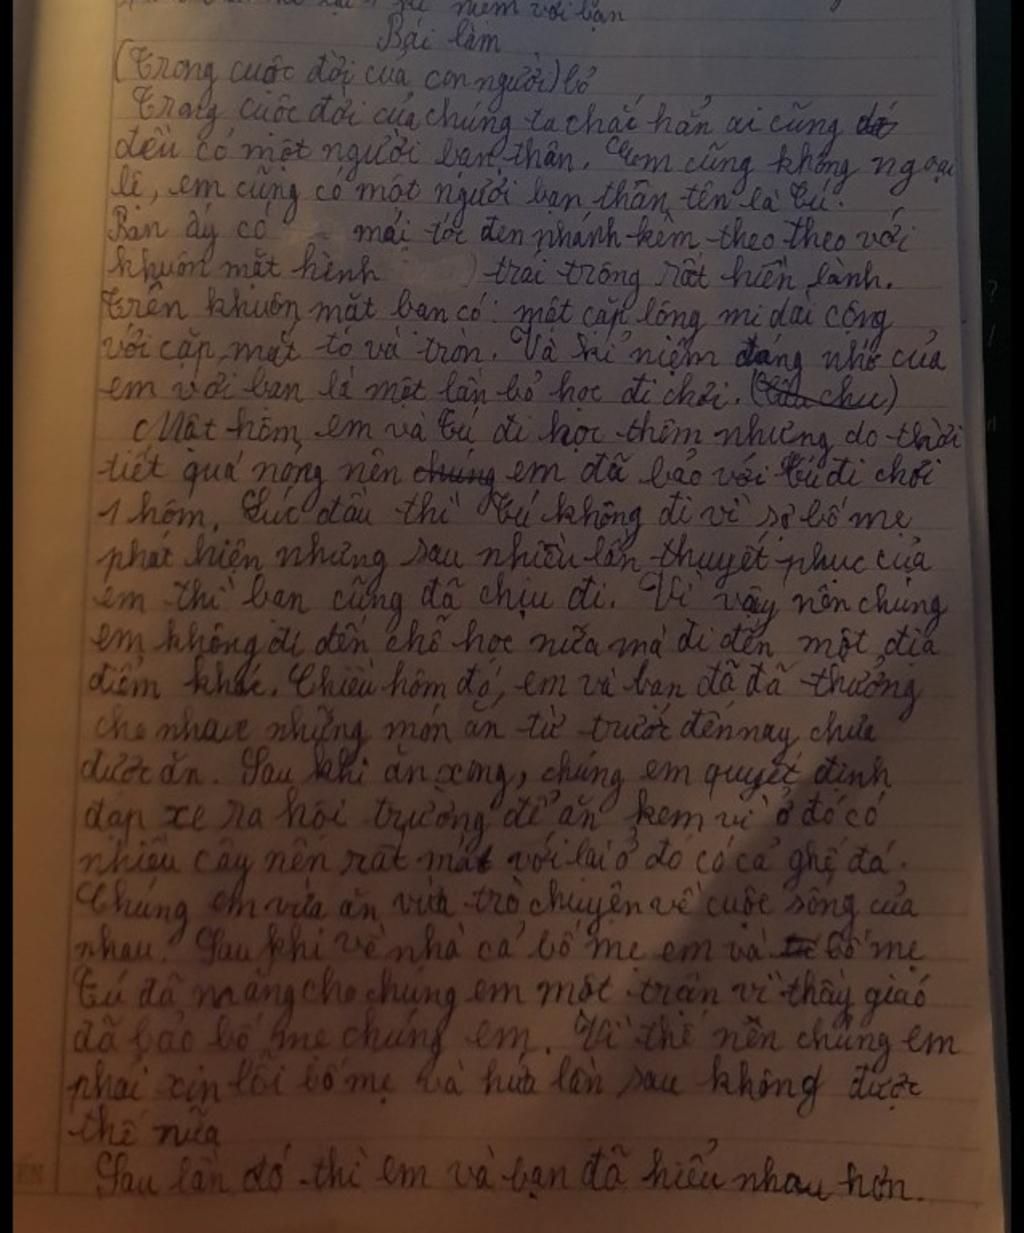 niệm với bạn
Bài làm
(Trong cuộc đời của con người) bỏ
Trong cuộc đời của chúng ta chắc hẳn ai cũng
đều có một người bạn thân. Em cũng không ngoại
lệ, em cũng có một người bạn thân tên là Tú.
Bạn ấy có mái tóc đen nhánh kèm theo theo với
khuôn mặt hình trái trông rất hiền lành.
Trên khuôn mặt bạn có: một cặp lông mi dài cong
với cặp mắt to và tròn. Và kỉ niệm đáng nhớ của
em với bạn là một lần bỏ học đi chơi.
Một hôm, em và Tú đi học thêm nhưng do thời
tiết quá nóng nên chúng em đã bảo với Tú đi chơi
1 hôm. Lúc đầu thì Tú không đi vì sợ bố mẹ
phát hiện nhưng sau nhiều lần thuyết phục của
em thì bạn cũng đã chịu đi. Vì vậy nên chúng
em không đi đến chỗ học nữa mà đi đến một địa
điểm khác. Chiều hôm đó, em và bạn đã đã thưởng
cho nhau những món ăn từ trước đến nay chưa
được ăn. Sau khi ăn xong, chúng em quyết định
đạp xe ra hội trường để ăn kem vì ở đó có
nhiều cây nên rất mát với lại ở đó có cả ghế đá.
Chúng em vừa ăn vừa trò chuyện về cuộc sống của
nhau. Sau khi về nhà cả bố mẹ em và bố mẹ
Tú đã mắng cho chúng em một trận vì thầy giáo
đã báo bố mẹ chúng em. Vì thế nên chúng em
phải xin lỗi bố mẹ và hứa lần sau không được
thế nữa
Sau lần đó thì em và bạn đã hiểu nhau hơn.